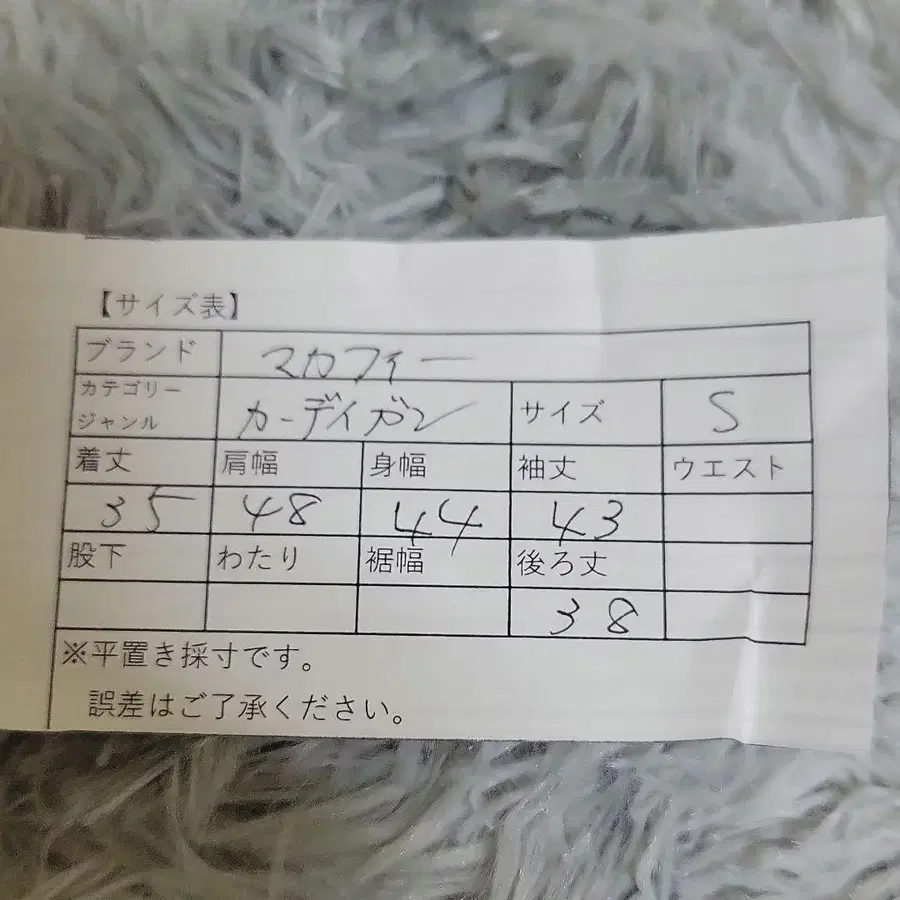 【サイズ表】
ブランド マカフィー
カテゴリー
ジャンル カーディガン サイズ S
着丈 肩幅 身幅 袖丈 ウエスト
35 48 44 43
股下 わたり 裾幅 後ろ丈
38
※平置き採寸です。
誤差はご了承ください。